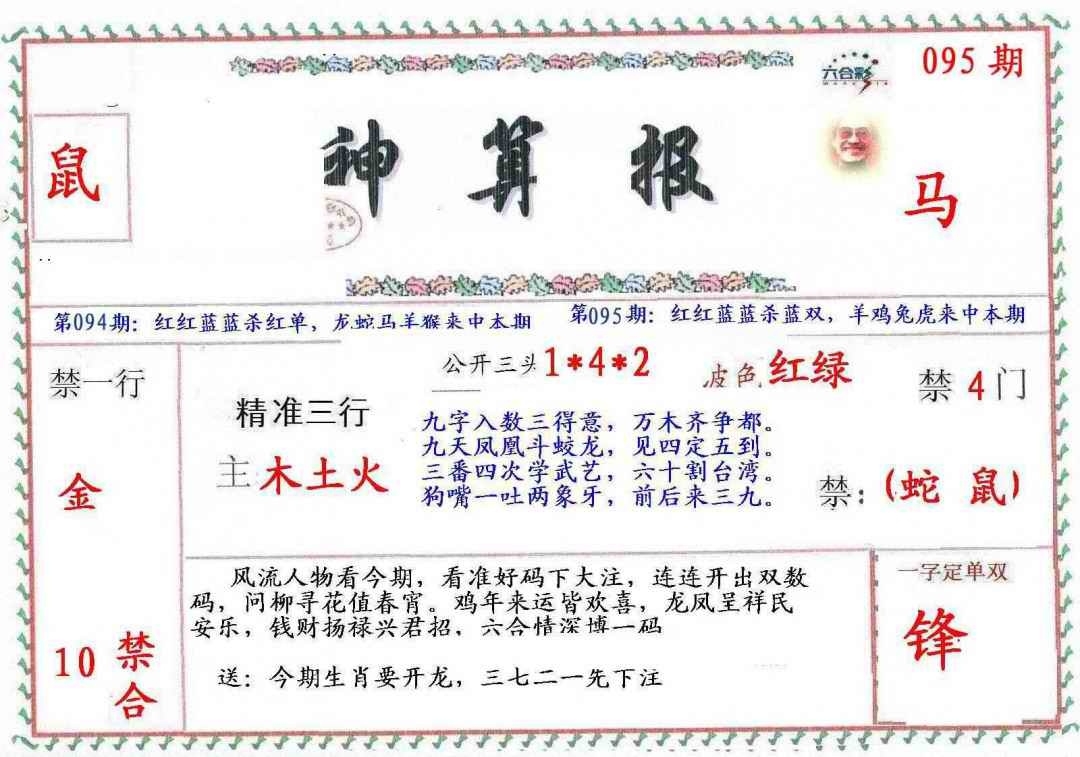 六合彩
095 期
鼠
神算报
马
第094期：红红蓝蓝杀红单，龙蛇马羊猴来中本期
第095期：红红蓝蓝杀蓝双，羊鸡兔虎来中本期
禁一行
金
10 禁合
公开三头1*4*2
波色 红绿
禁 4 门
精准三行
主 木土火
九字入数三得意，万木齐争都。
九天凤凰斗蛟龙，见四定五到。
三番四次学武艺，六十割台湾。
狗嘴一吐两象牙，前后来三九。
禁：(蛇 鼠)
风流人物看今期，看准好码下大注，连连开出双数
码，问柳寻花值春宵。鸡年来运皆欢喜，龙凤呈祥民
安乐，钱财扬禄兴君招，六合情深博一码
送：今期生肖要开龙，三七二一先下注
一字定单双
锋